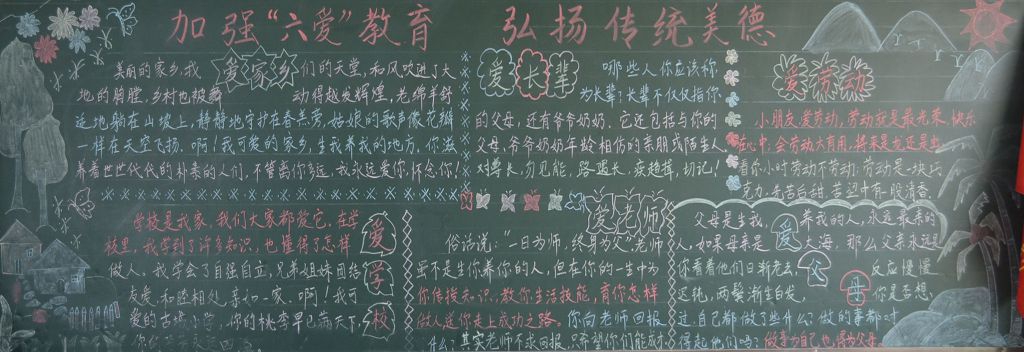 加强“六爱”教育 弘扬传统美德
爱家乡
美丽的家乡,我们的天堂,和风吹进了大
地的胸膛,乡村也被舞动得越发辉煌,老绵羊舒
适地躺在山坡上,静静地守护在春无旁,姑娘的歌声像花瓣
一样在天空飞扬。啊!我可爱的家乡,生我养我的地方,你滋
养着世世代代的朴素的人们,不管离你多远,我永远爱你,怀念你!
爱长辈
哪些人你应该称
为长辈?长辈不仅仅指你
的父母,还有爷爷奶奶。它还包括与你的
父母,爷爷奶奶年龄相仿的亲朋或陌生人。
对尊长,勿见能,路遇长,疾趋揖,切记!
爱劳动
小朋友,爱劳动,劳动就是最光荣。快乐
看你小时劳动不劳动,劳动是一块
爱学校
学校是我家,我们大家都爱它。在学
校里,我学到了许多知识,也懂得了怎样
做人。我学会了自强自立,兄弟姐妹团结
友爱,和睦相处,亲如一家。啊!我可
爱的古塘小学,你的桃李早已满天下,
爱老师
俗话说:“一日为师,终身为父”老师
虽不是生你养你的人,但在你的一生中为
你传授知识,教你生活技能,育你怎样
做人送你走上成功之路。你向老师回报
什么?其实老师不求回报,只希望你们能成
爱父母
父母是生我,养我的人,永远最亲的
人,如果母亲是大海 那么父亲永远是
你看着他们日渐老去,反应慢慢
迟钝,两鬓渐生白发,你是否想
过,自己都做了些什么?做的事都对
得起他们吗?做事为自己也得为父母。